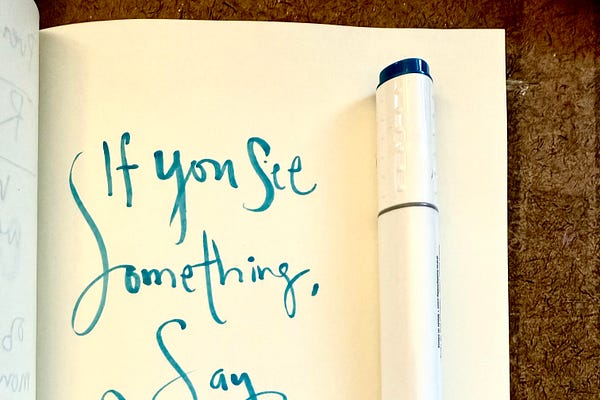 If you See
Something,
Say